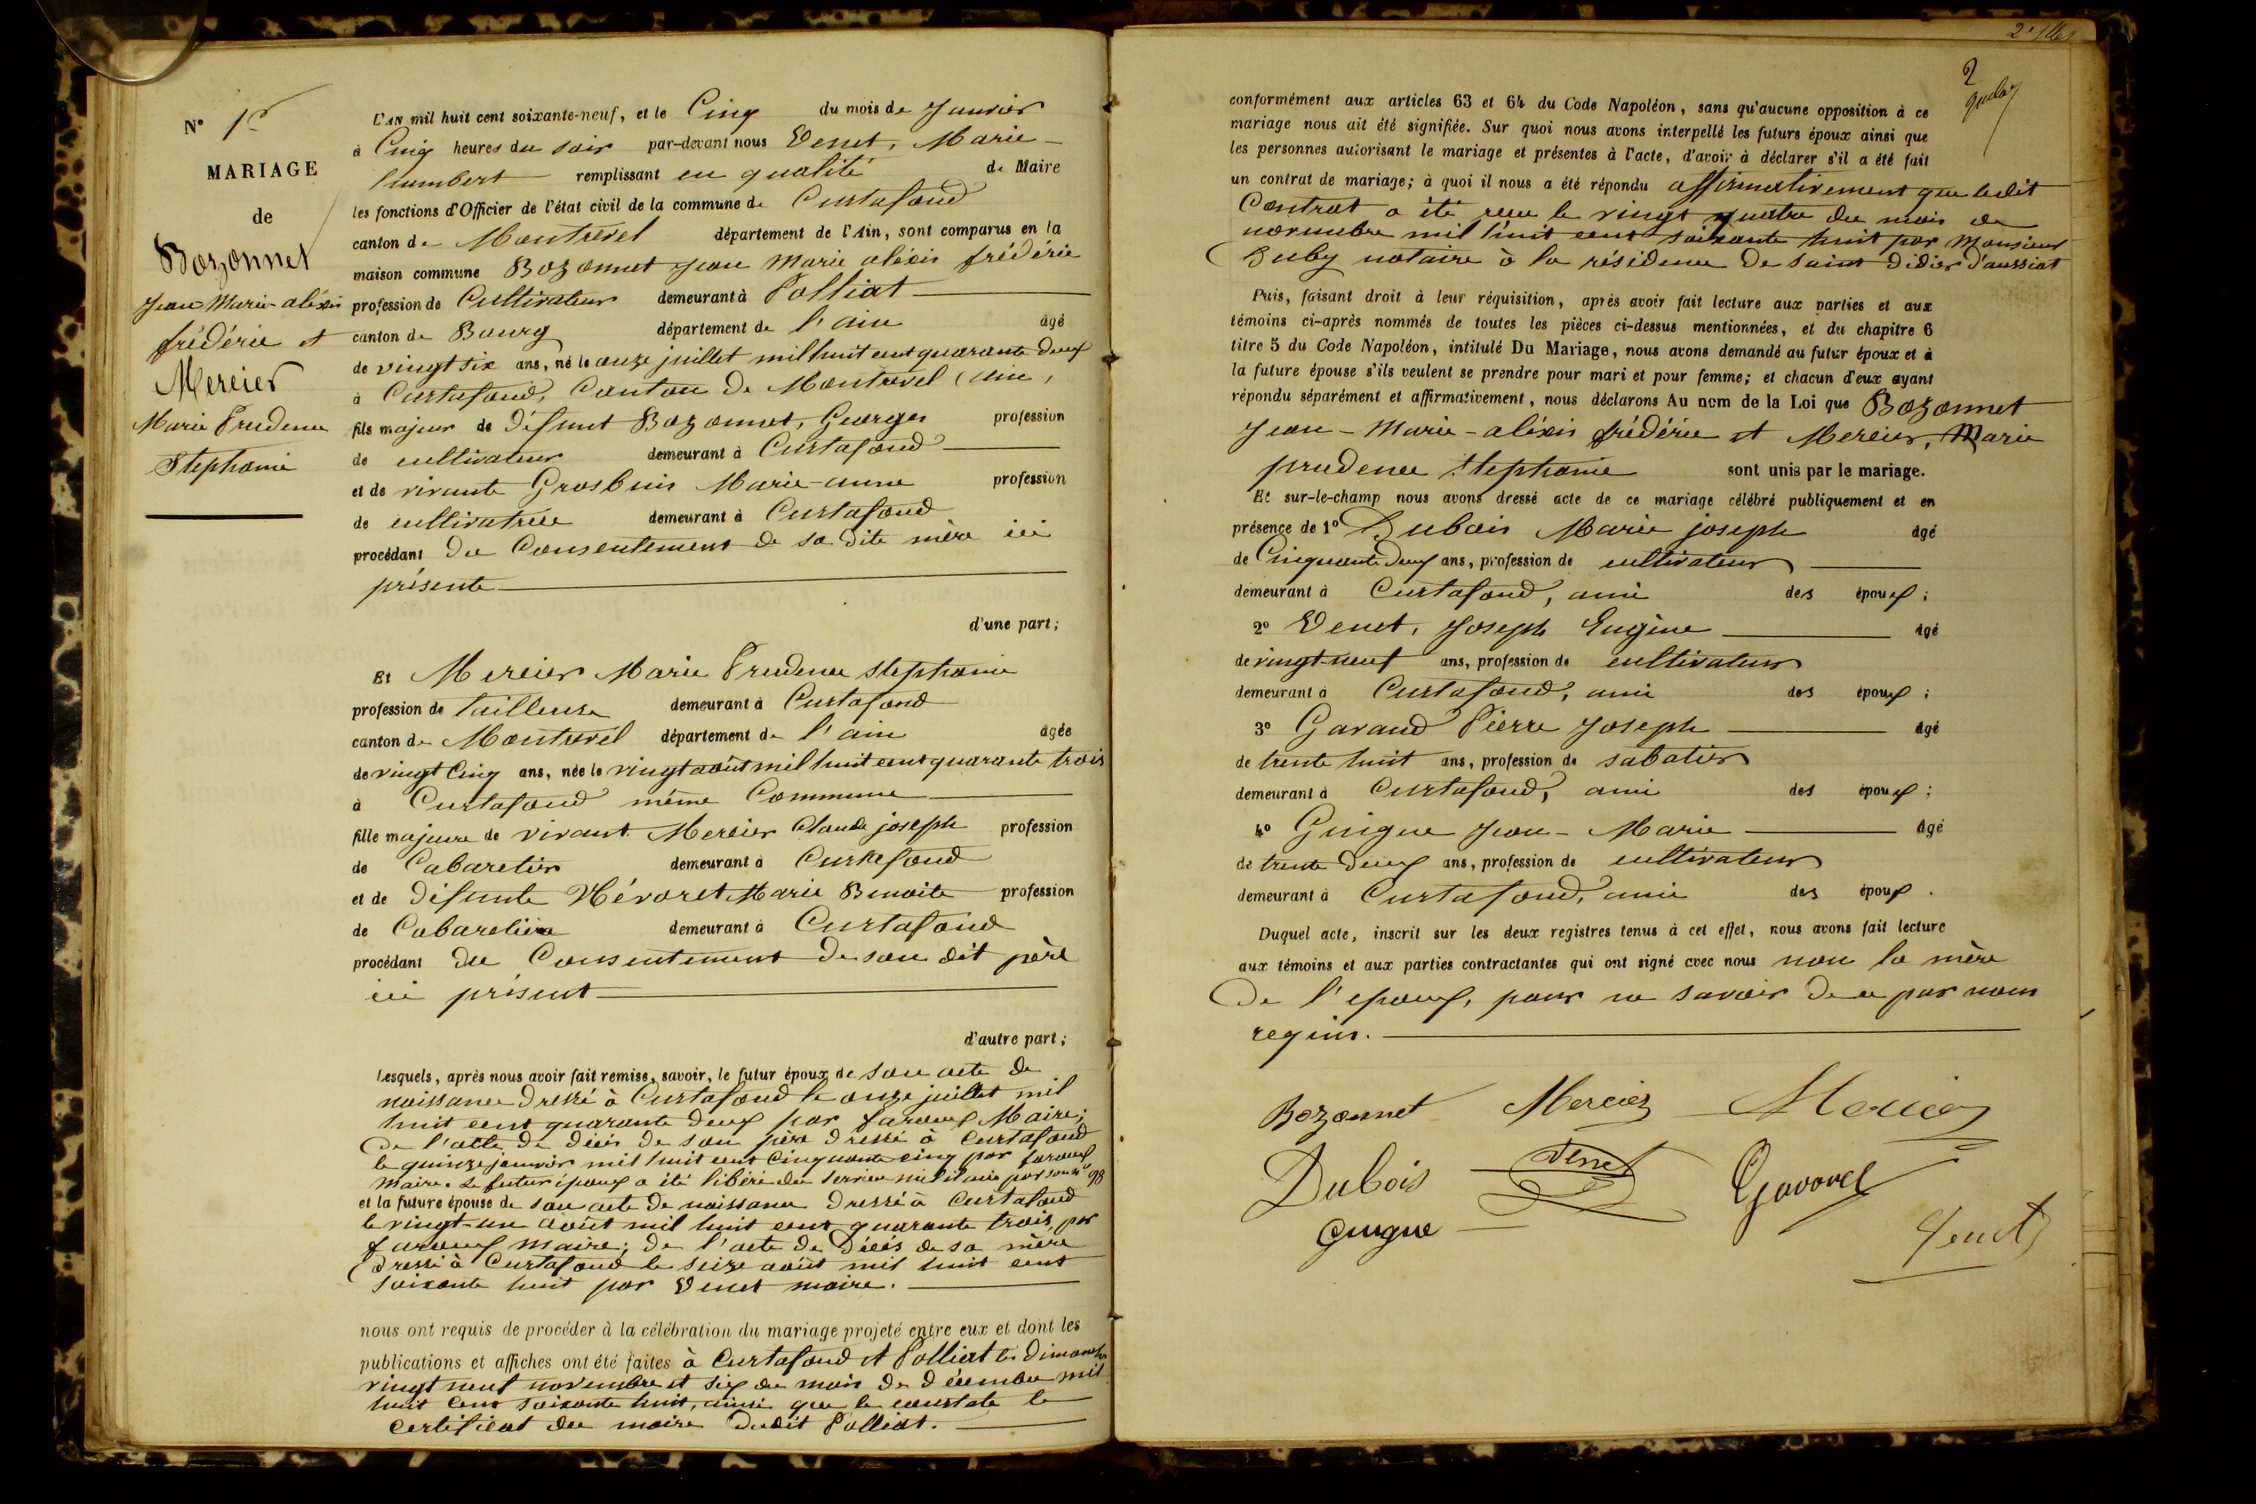 N° 1er
MARIAGE
de
Bozonnet
Jean Marie-aléxis
frédéric et
Mercier
Marie Prudence
Stephanie
L'AN mil huit cent soixante-neuf, et le Cinq du mois de Janvier
à Cinq heures du soir par-devant nous Venet, Marie-
humbert remplissant en qualité de Maire
les fonctions d'Officier de l'état civil de la commune de Curtafond
canton de Montrevel département de l'Ain, sont comparus en la
maison commune Bozonnet Jean Marie aléxis frédéric
profession de Cultivateur demeurant à Polliat
canton de Bourg département de l'ain âgé
de vingt six ans, né le onze juillet mil huit cent quarante deux
à Curtafond, Canton de Montrevel (ain,
fils majeur de défunt Bozonnet, Georges profession
de cultivateur demeurant à Curtafond
et de vivante Grosbuis Marie-anne profession
de cultivatrice demeurant à Curtafond
procédant du Consentement de sa dite mère ici
présente
d'une part;
Et Mercier Marie Prudence stephanie
profession de tailleuse demeurant à Curtafond
canton de Montrevel département de l'ain âgée
de vingt Cinq ans, née le vingt août mil huit cent quarante trois
à Curtafond même Commune
fille majeure de vivant Mercier Claude joseph profession
de Cabaretier demeurant à Curtafond
et de défunte Névoret Marie Benoite profession
de Cabaretière demeurant à Curtafond
procédant du Consentement de son dit père
ici présent
d'autre part;
Lesquels, après nous avoir fait remise, savoir, le futur époux de son acte de
naissance dressé à Curtafond le onze juillet mil
huit cent quarante deux par faroux Maire;
De l'acte de décès de son père dressé à Curtafond
le quinze janvier mil huit cent Cinquante cinq par faroux
maire. Le futur époux a été libéré du service militaire par son n° 98
et la future épouse de son acte de naissance dressé à Curtafond
le vingt-un août mil huit cent quarante trois, par
faroux maire; de l'acte de décès de sa mère
dressé à Curtafond le seize août mil huit cent
soixante huit par Venet maire.
nous ont requis de procéder à la célébration du mariage projeté entre eux et dont les
publications et affiches ont été faites à Curtafond et Polliat les dimanches
vingt neuf novembre et six du mois de décembre mil
huit cent soixante huit, ainsi que le constate le
certificat du maire dudit Polliat.
2
conformément aux articles 63 et 64 du Code Napoléon, sans qu'aucune opposition à ce
mariage nous ait été signifiée. Sur quoi nous avons interpellé les futurs époux ainsi que
les personnes autorisant le mariage et présentes à l'acte, d'avoir à déclarer s'il a été fait
un contrat de mariage; à quoi il nous a été répondu affirmativement que ledit
Contrat a été reçu le vingt quatre du mois de
novembre mil huit cent soixante huit par Monsieur
Buby notaire à la résidence de saint didier d'aussiat
Puis, faisant droit à leur réquisition, après avoir fait lecture aux parties et aux
témoins ci-après nommés de toutes les pièces ci-dessus mentionnées, et du chapitre 6
titre 5 du Code Napoléon, intitulé Du Mariage, nous avons demandé au futur époux et à
la future épouse s'ils veulent se prendre pour mari et pour femme; et chacun d'eux ayant
répondu séparément et affirmativement, nous déclarons Au nom de la Loi que Bozonnet
Jean-Marie-aléxis frédéric et Mercier, Marie
prudence stephanie sont unis par le mariage.
Et sur-le-champ nous avons dressé acte de ce mariage célébré publiquement et en
présence de 1° Dubois Marie joseph âgé
de Cinquante deux ans, profession de cultivateur
demeurant à Curtafond, ami des époux;
2° Venet, Joseph Eugène âgé
de vingt-neuf ans, profession de cultivateur
demeurant à Curtafond, ami des époux;
3° Gavand Pierre Joseph âgé
de trente huit ans, profession de sabotier
demeurant à Curtafond, ami des époux;
4° Guigue Jean-Marie âgé
de trente deux ans, profession de cultivateur
demeurant à Curtafond, ami des époux.
Duquel acte, inscrit sur les deux registres tenus à cet effet, nous avons fait lecture
aux témoins et aux parties contractantes qui ont signé avec nous non la mère
De l'époux, pour ne savoir de ce par nous
requis.
Bozonnet Mercier Mercier
Dubois Venet
Guigue
Venet